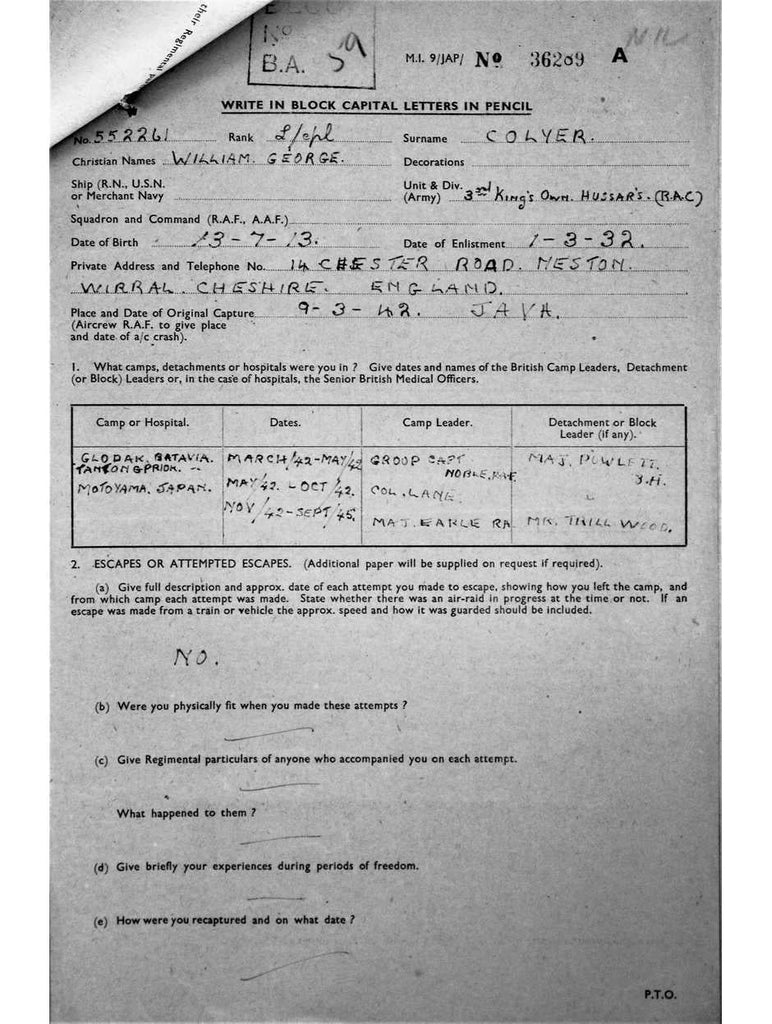 their Regimental
No
B.A. 59
M.I. 9/JAP/ No 36289 A
WRITE IN BLOCK CAPITAL LETTERS IN PENCIL
No. 552261 Rank L/cpl Surname COLYER.
Christian Names WILLIAM. GEORGE. Decorations
Ship (R.N., U.S.N. or Merchant Navy
Unit & Div. (Army) 3rd KING'S OWN. HUSSAR'S. (R.A.C)
Squadron and Command (R.A.F., A.A.F.)
Date of Birth 13-7-13. Date of Enlistment 1-3-32.
Private Address and Telephone No. 14 CHESTER ROAD. NESTON.
WIRRAL. CHESHIRE. ENGLAND.
Place and Date of Original Capture 9-3-42. JAVA.
(Aircrew R.A.F. to give place
and date of a/c crash).
1. What camps, detachments or hospitals were you in ? Give dates and names of the British Camp Leaders, Detachment
(or Block) Leaders or, in the case of hospitals, the Senior British Medical Officers.
Camp or Hospital. Dates. Camp Leader. Detachment or Block
Leader (if any).
GLODAK. BATAVIA. MARCH/42-MAY/42 GROOP CAPT NOBLE. RAF. MAJ. POWLETT. 3.H.
TANTONGPRIOK. MAY/42. - OCT/42. COL. LANE.
MOTOYAMA. JAPAN. NOV/42-SEPT/45. MAJ. EARLE RA MR. THILL WOOD.
2. ESCAPES OR ATTEMPTED ESCAPES. (Additional paper will be supplied on request if required).
(a) Give full description and approx. date of each attempt you made to escape, showing how you left the camp, and
from which camp each attempt was made. State whether there was an air-raid in progress at the time or not. If an
escape was made from a train or vehicle the approx. speed and how it was guarded should be included.
NO.
(b) Were you physically fit when you made these attempts ?
(c) Give Regimental particulars of anyone who accompanied you on each attempt.
What happened to them ?
(d) Give briefly your experiences during periods of freedom.
(e) How were you recaptured and on what date ?
P.T.O.